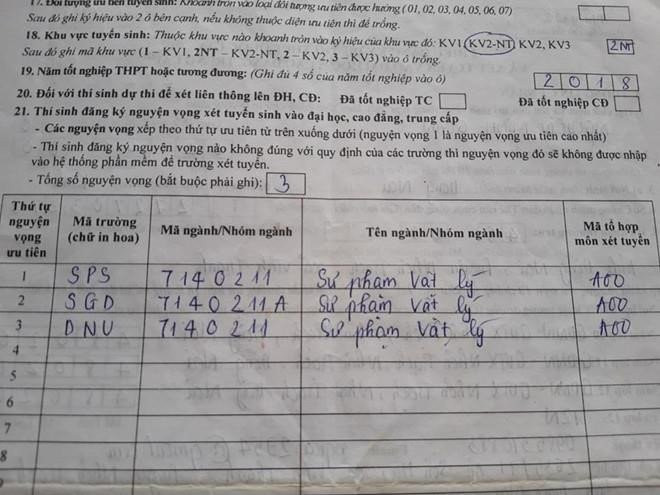 17. Đối tượng ưu tiên tuyển sinh: Khoanh tròn vào loại đối tượng ưu tiên được hưởng ( 01, 02, 03, 04, 05, 06, 07)
Sau đó ghi ký hiệu vào 2 ô bên cạnh, nếu không thuộc diện ưu tiên thì để trống.
18. Khu vực tuyển sinh: Thuộc khu vực nào khoanh tròn vào ký hiệu của khu vực đó: KV1, KV2-NT, KV2, KV3 2NT
Sau đó ghi mã khu vực (1 – KV1, 2NT – KV2-NT, 2 – KV2, 3 – KV3) vào ô trống.
19. Năm tốt nghiệp THPT hoặc tương đương: (Ghi đủ 4 số của năm tốt nghiệp vào ô) 2018
20. Đối với thí sinh dự thi để xét liên thông lên ĐH, CĐ: Đã tốt nghiệp TC Đã tốt nghiệp CĐ
21. Thí sinh đăng ký nguyện vọng xét tuyển sinh vào đại học, cao đẳng, trung cấp
- Các nguyện vọng xếp theo thứ tự ưu tiên từ trên xuống dưới (nguyện vọng 1 là nguyện vọng ưu tiên cao nhất)
- Thí sinh đăng ký nguyện vọng nào không đúng với quy định của các trường thì nguyện vọng đó sẽ không được nhập
vào hệ thống phần mềm để trường xét tuyển.
- Tổng số nguyện vọng (bắt buộc phải ghi): 3
Thứ tự nguyện vọng ưu tiên Mã trường (chữ in hoa) Mã ngành/Nhóm ngành Tên ngành/Nhóm ngành Mã tổ hợp môn xét tuyển
1 SPS 7140211 Sư phạm Vật lý A00
2 SGD 7140211A Sư phạm Vật lý A00
3 DNU 7140211 Sư phạm Vật lý A00
4
5
6
7
8